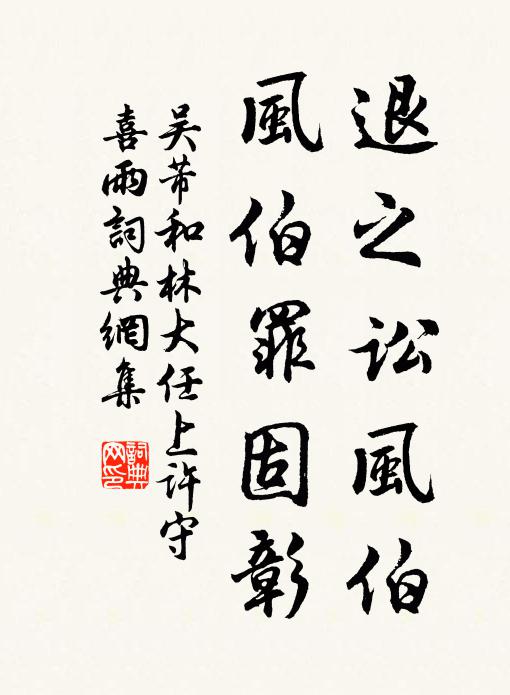 退之訟風伯
風伯罪固彰
吴芾和林大任上許守
喜雨詞典網集
詞典
网印